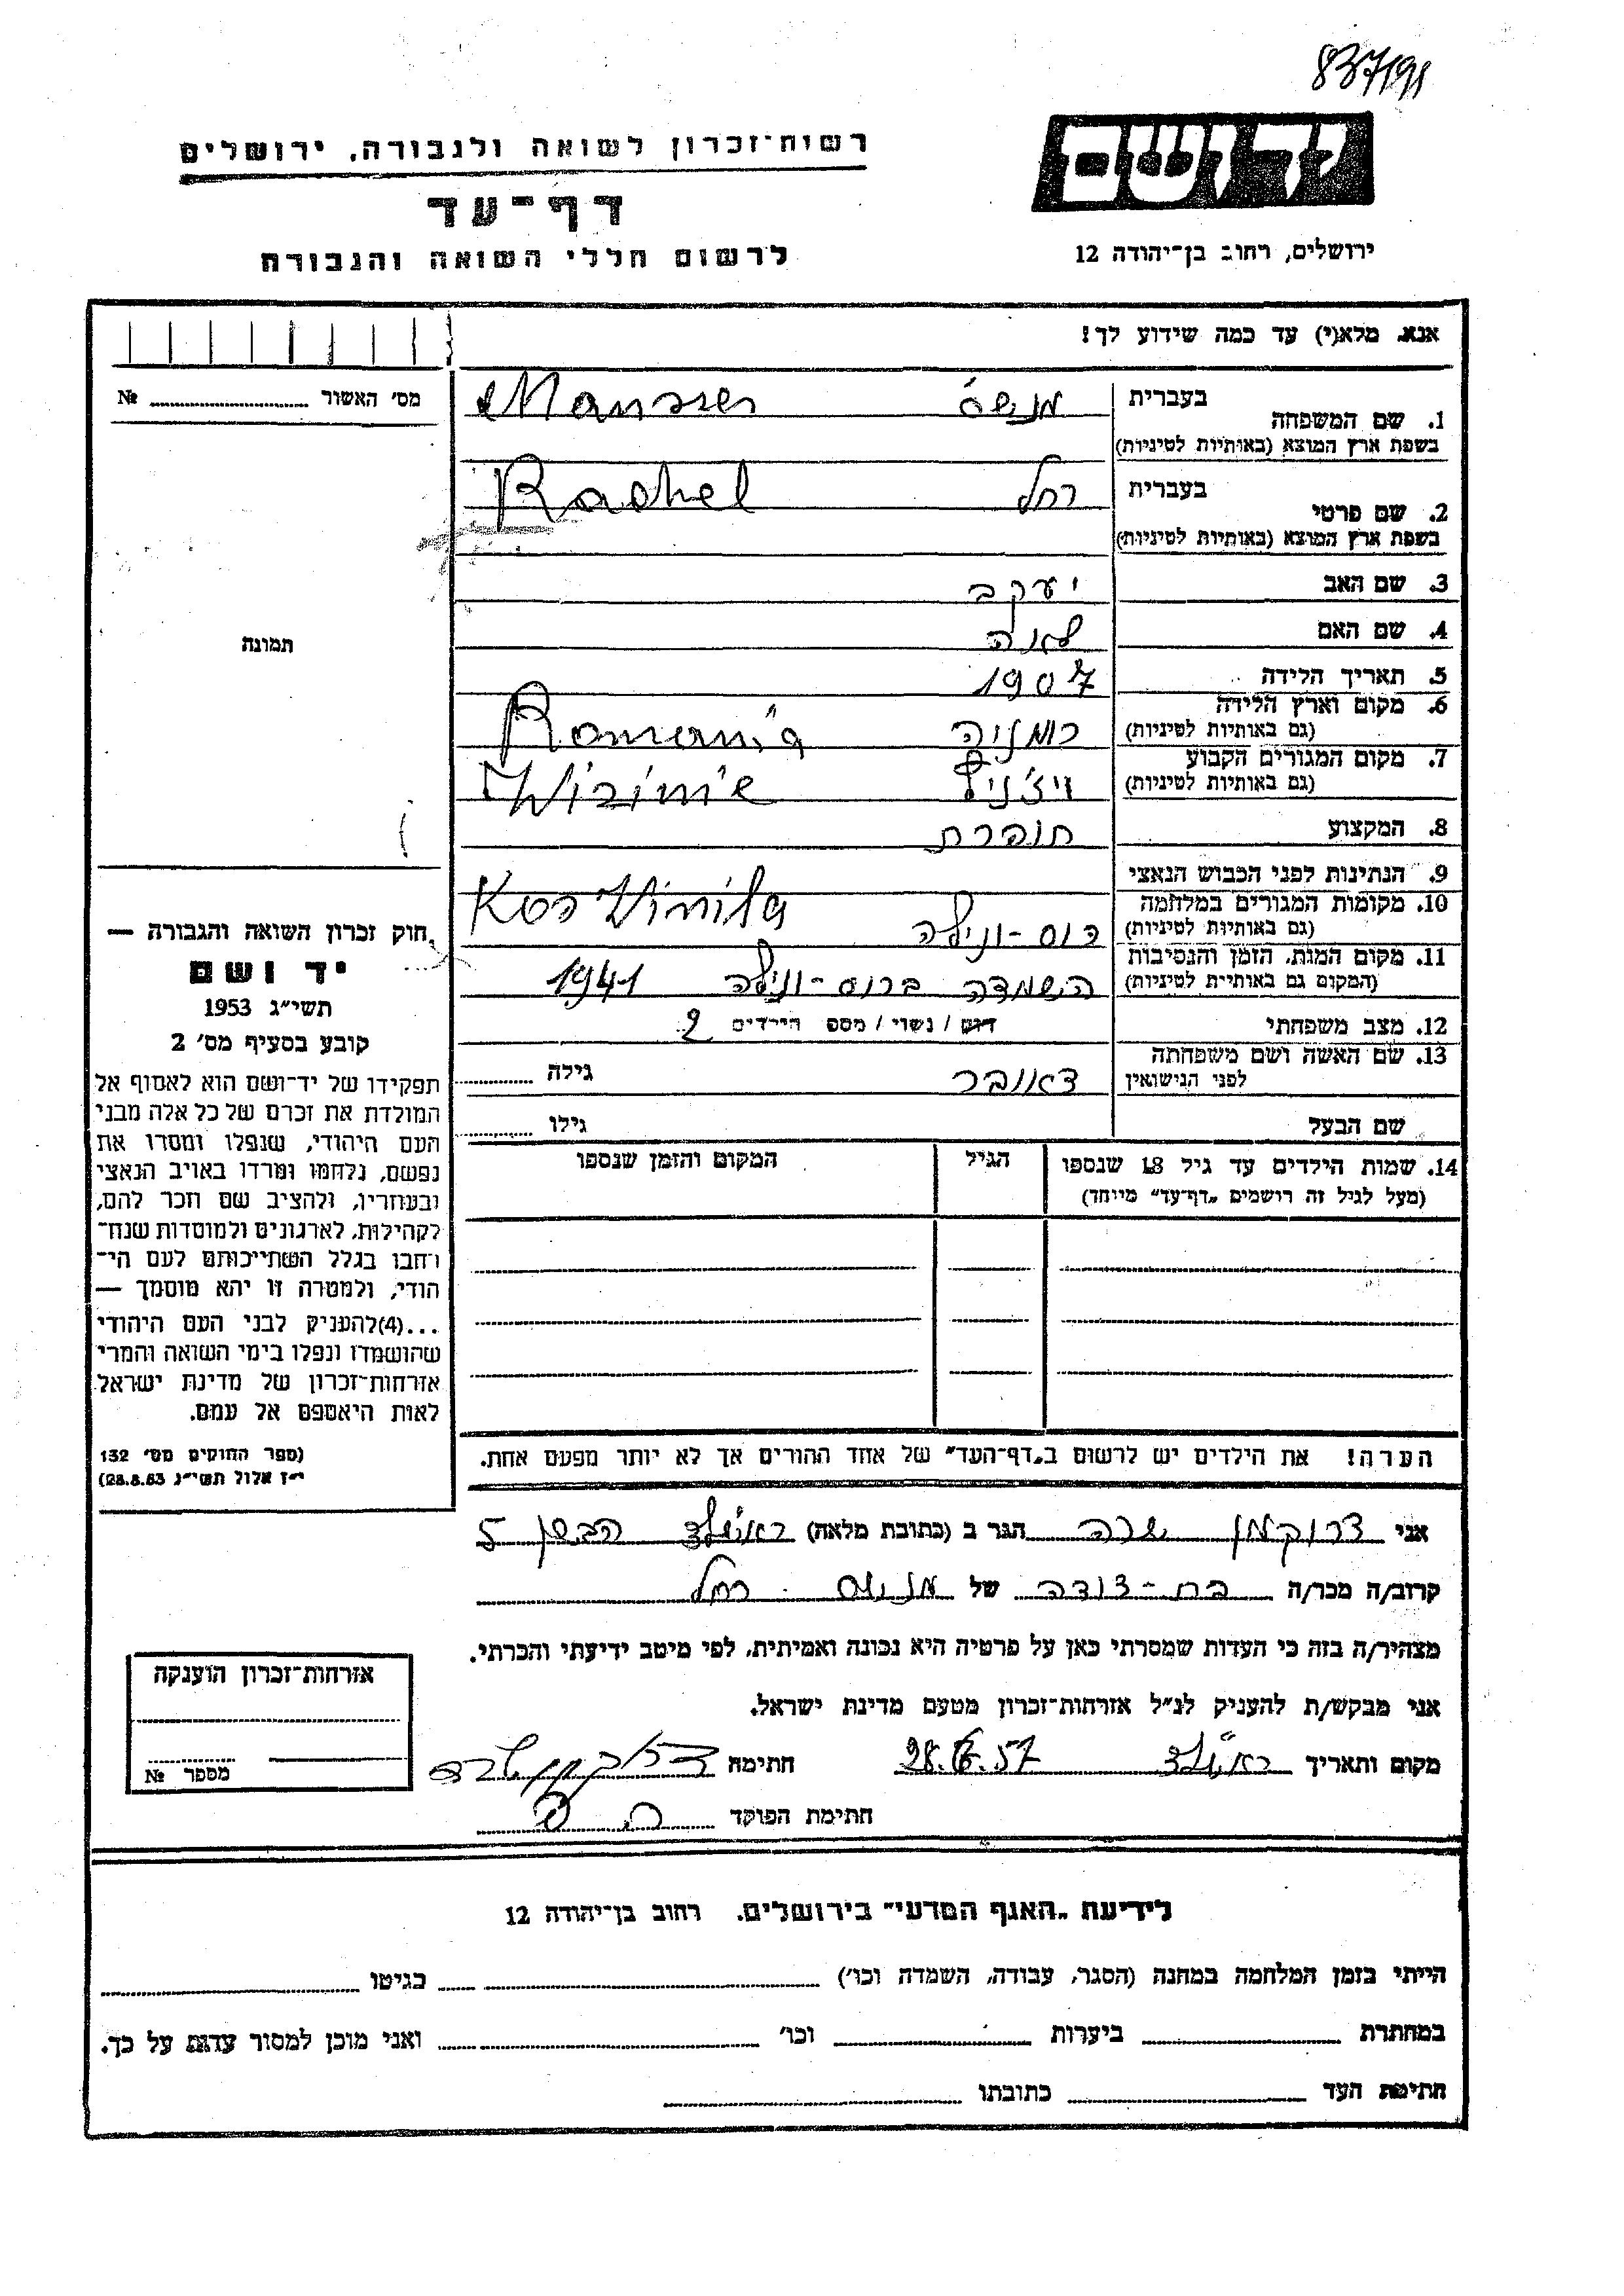 837/91
יד ושם
רשות־זכרון לשואה ולגבורה, ירושלים
דף־עד
לרשום חללי השואה והגבורה
ירושלים, רחוב בן־יהודה 12
אנא, מלא(י) עד כמה שידוע לך!
מס׳ האשור № ............
1. שם המשפחה בעברית
בשפת ארץ המוצא (באותיות לטיניות)
2. שם פרטי בעברית רחל Rachel
בשפת ארץ המוצא (באותיות לטיניות)
3. שם האב יעקב
4. שם האם לאה
5. תאריך הלידה 1907
6. מקום וארץ הלידה
(גם באותיות לטיניות) רומניה Romania
7. מקום המגורים הקבוע
(גם באותיות לטיניות)
8. המקצוע תופרת
9. הנתינות לפני הכבוש הנאצי
10. מקומות המגורים במלחמה
(גם באותיות לטיניות) רוס-ונילה
11. מקום המות, הזמן והנסיבות
(המקום גם באותיות לטיניות) השמדה ברוס-ונילה 1941
12. מצב משפחתי רווק / נשוי / מספר הילדים 2
13. שם האשה ושם משפחתה
לפני הנישואין דאובר גילה
שם הבעל גילו
14. שמות הילדים עד גיל 18 שנספו הגיל המקום והזמן שנספו
(מעל לגיל זה רושמים „דף־עד” מיוחד)
תמונה
חוק זכרון השואה והגבורה —
יד ושם
תשי״ג 1953
קובע בסעיף מס׳ 2
תפקידו של יד־ושם הוא לאסוף אל
המולדת את זכרם של כל אלה מבני
העם היהודי, שנפלו ומסרו את
נפשם, נלחמו ומרדו באויב הנאצי
ובעוזריו, ולהציב שם וזכר להם,
לקהילות, לארגונים ולמוסדות שנח־
רבו בגלל השתייכותם לעם הי־
הודי, ולמטרה זו יהא מוסמך —
...(4)להעניק לבני העם היהודי
שהושמדו ונפלו בימי השואה והמרי
אזרחות־זכרון של מדינת ישראל
לאות היאספם אל עמם.
(ספר החוקים מס׳ 132
י״ז אלול תשי״ג 28.8.53)
הערה! את הילדים יש לרשום ב„דף־העד” של אחד ההורים אך לא יותר מפעם אחת.
אני דרוקמן שרה הגר ב (כתובת מלאה) 5
קרוב/ה מכר/ה בת-דודה של מנשס רחל
מצהיר/ה בזה כי העדות שמסרתי כאן על פרטיה היא נכונה ואמיתית, לפי מיטב ידיעתי והכרתי.
אני מבקש/ת להעניק לנ״ל אזרחות־זכרון מטעם מדינת ישראל.
מקום ותאריך חתימה
חתימת הפוקד
אזרחות־זכרון הוענקה
מספר №
לידיעת „האגף המדעי” בירושלים, רחוב בן־יהודה 12
הייתי בזמן המלחמה במחנה (הסגר, עבודה, השמדה וכו׳) בגיטו
במחתרת ביערות וכו׳ ואני מוכן למסור עדות על כך.
חתימת העד כתובתו